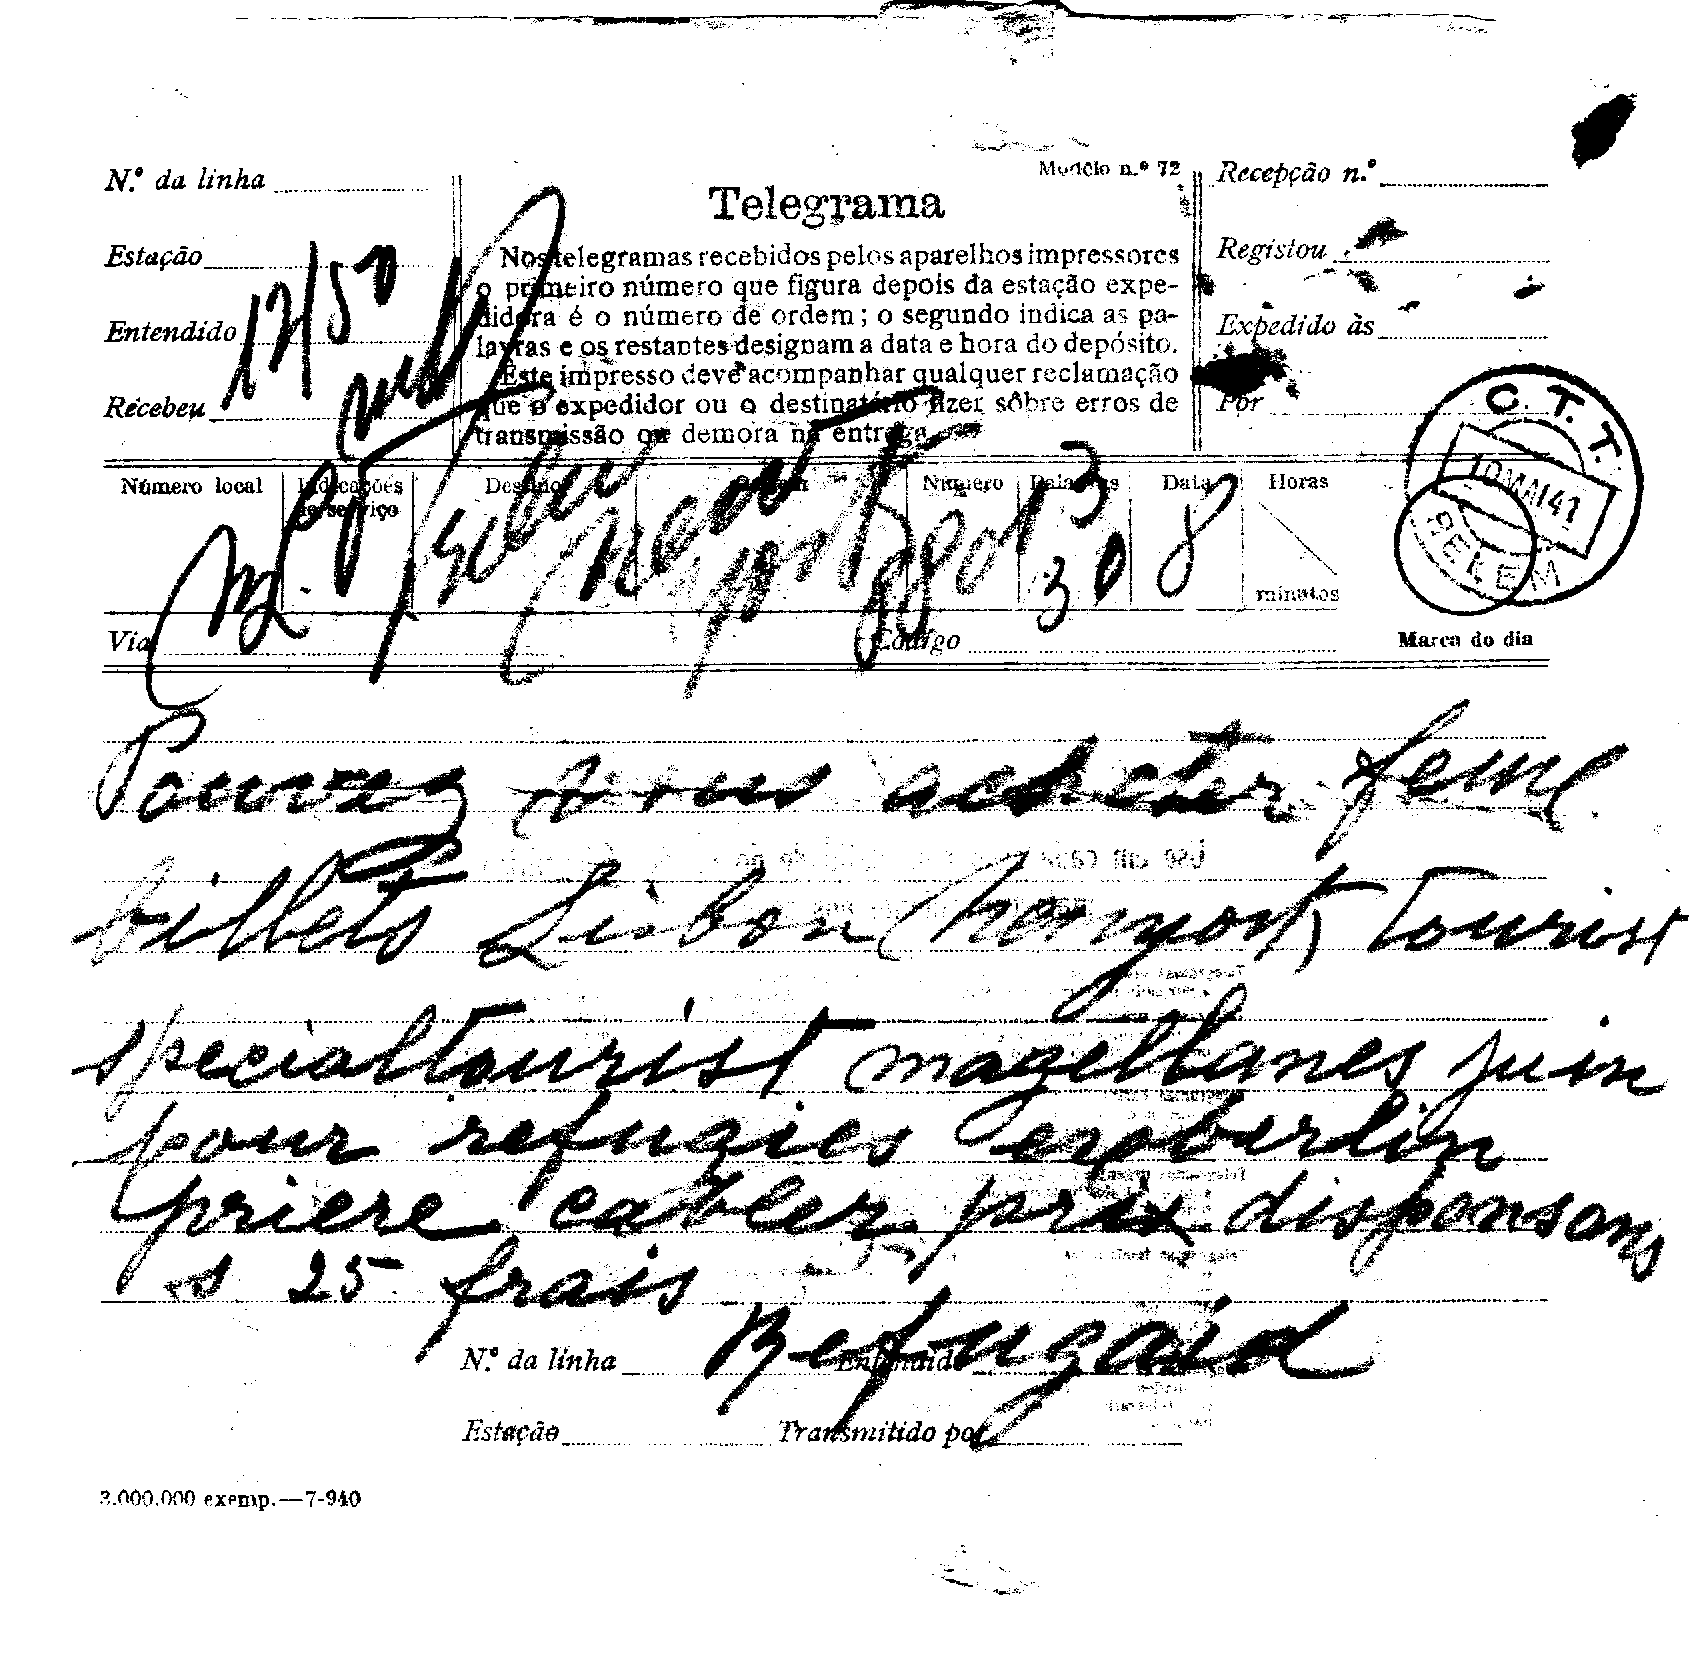 Modélo n.º 72
N.º da linha
Telegrama
Recepção n.º
Estação
Nos telegramas recebidos pelos aparelhos impressores
o primeiro número que figura depois da estação expe-
didora é o número de ordem; o segundo indica as pa-
lavras e os restantes designam a data e hora do depósito.
Este impresso deve acompanhar qualquer reclamação
que o expedidor ou o destinatário fizer sôbre erros de
transmissão ou demora na entrega
Registou
Entendido
17/50
Expedido às
Recebeu
Por
C.T.T.
10 MAI 41
BELEM
Número local
Indicações de serviço
Destino
Origem
Número
Palavras
Data
Horas
30 8
minutos
Via
Código
Marca do dia
Pouvez vous acheter ferme
billets Lisbon (Newyork) tourist
specialtourist magellanes juin
pour refugies exberlin
priere cabler prix disponsons
s 25 frais
Refugaid
N.º da linha
Entendido
Estação
Transmitido por
3.000.000 exemp.—7-940